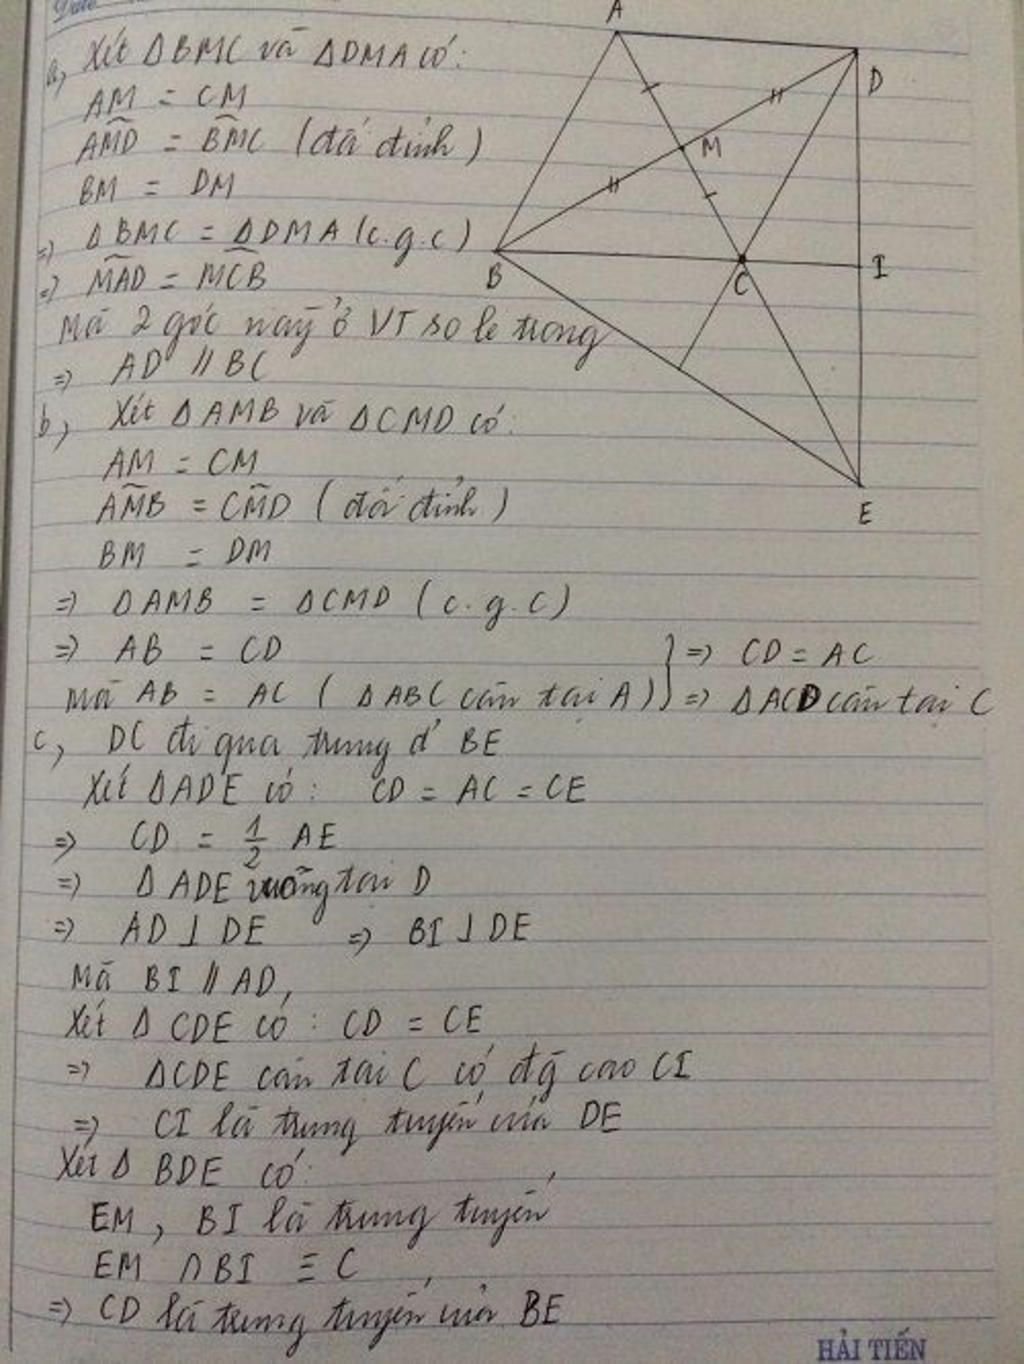 Date
A
a, Xét ΔBMC và ΔDMA có:
D
AM = CM
AMD = BMC (đối đỉnh)
M
BM = DM
=> Δ BMC = ΔDMA (c.g.c)
B
C
I
=> MAD = MCB
Mà 2 góc này ở VT so le trong
=> AD // BC
b, Xét ΔAMB và ΔCMD có:
AM = CM
AMB = CMD (đối đỉnh)
E
BM = DM
=> ΔAMB = ΔCMD (c.g.c)
=> AB = CD } => CD = AC
Mà AB = AC (ΔABC cân tại A) => ΔACD cân tại C
c, DC đi qua trung đ' BE
Xét ΔADE có: CD = AC = CE
=> CD = 1/2 AE
=> Δ ADE vuông tại D
=> AD ⊥ DE => BI ⊥ DE
Mà BI // AD,
Xét Δ CDE có: CD = CE
=> ΔCDE cân tại C có đg cao CI
=> CI là trung tuyến của DE
Xét Δ BDE có:
EM, BI là trung tuyến
EM ∩ BI ≡ C
=> CD là trung tuyến của BE
HẢI TIẾN